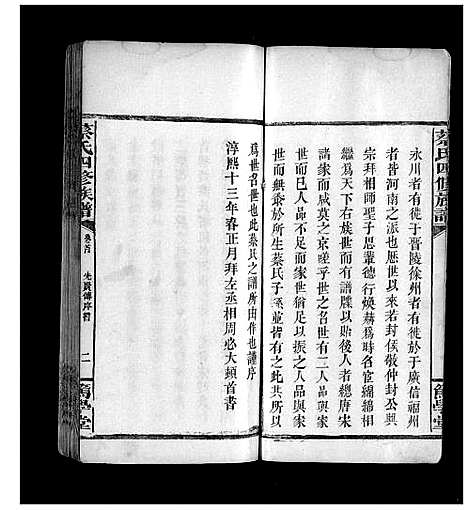 蔡氏四修族譜
篤學堂
永川者有徙於晋陵徐州者有徙於廣信福州
者皆河南之派也歷世以來若封侯敬仲封公與
宗拜相師聖子思輩德行煥赫為時名宦綿綿相
繼為天下右族世而有譜牒以一之者總唐宋
諸家而咸莫之京嗟乎世之名世有二人品與家
世而已人品不足而家世有餘君子以振之人品與家
世而無忝於所生蔡氏子孫並皆有之其共所以
為世名世也此蔡氏之譜所由作也謹序
淳熙十三年春正月拜左丞相周必大頓首書
蔡氏四修族譜
卷首
先賢傳序符
二
篤學堂